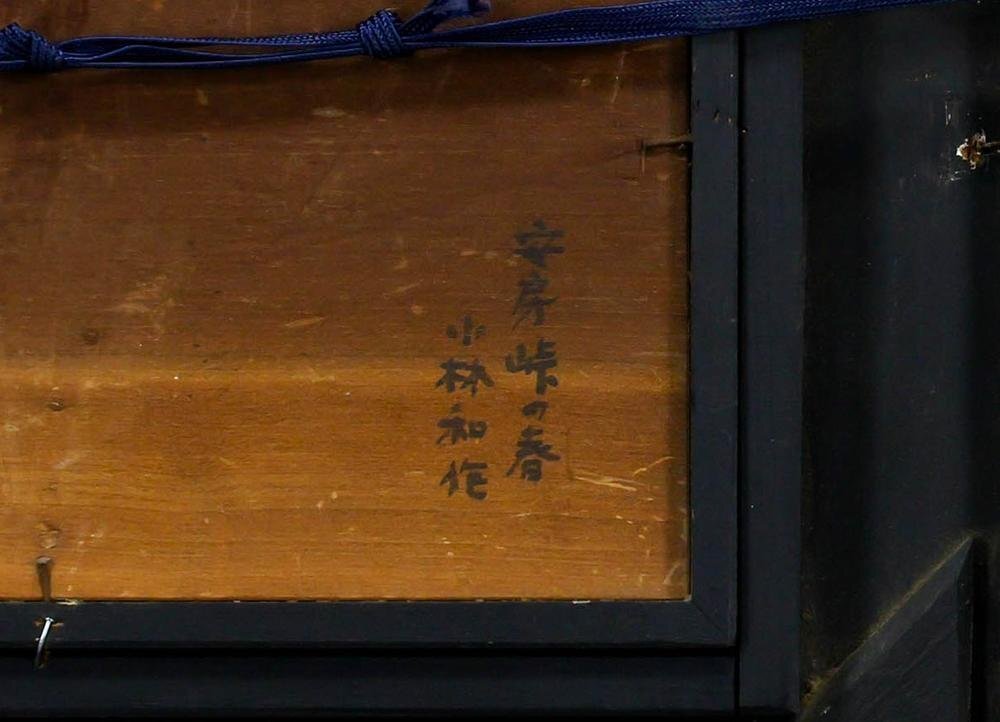 安房峠の春
小林和作